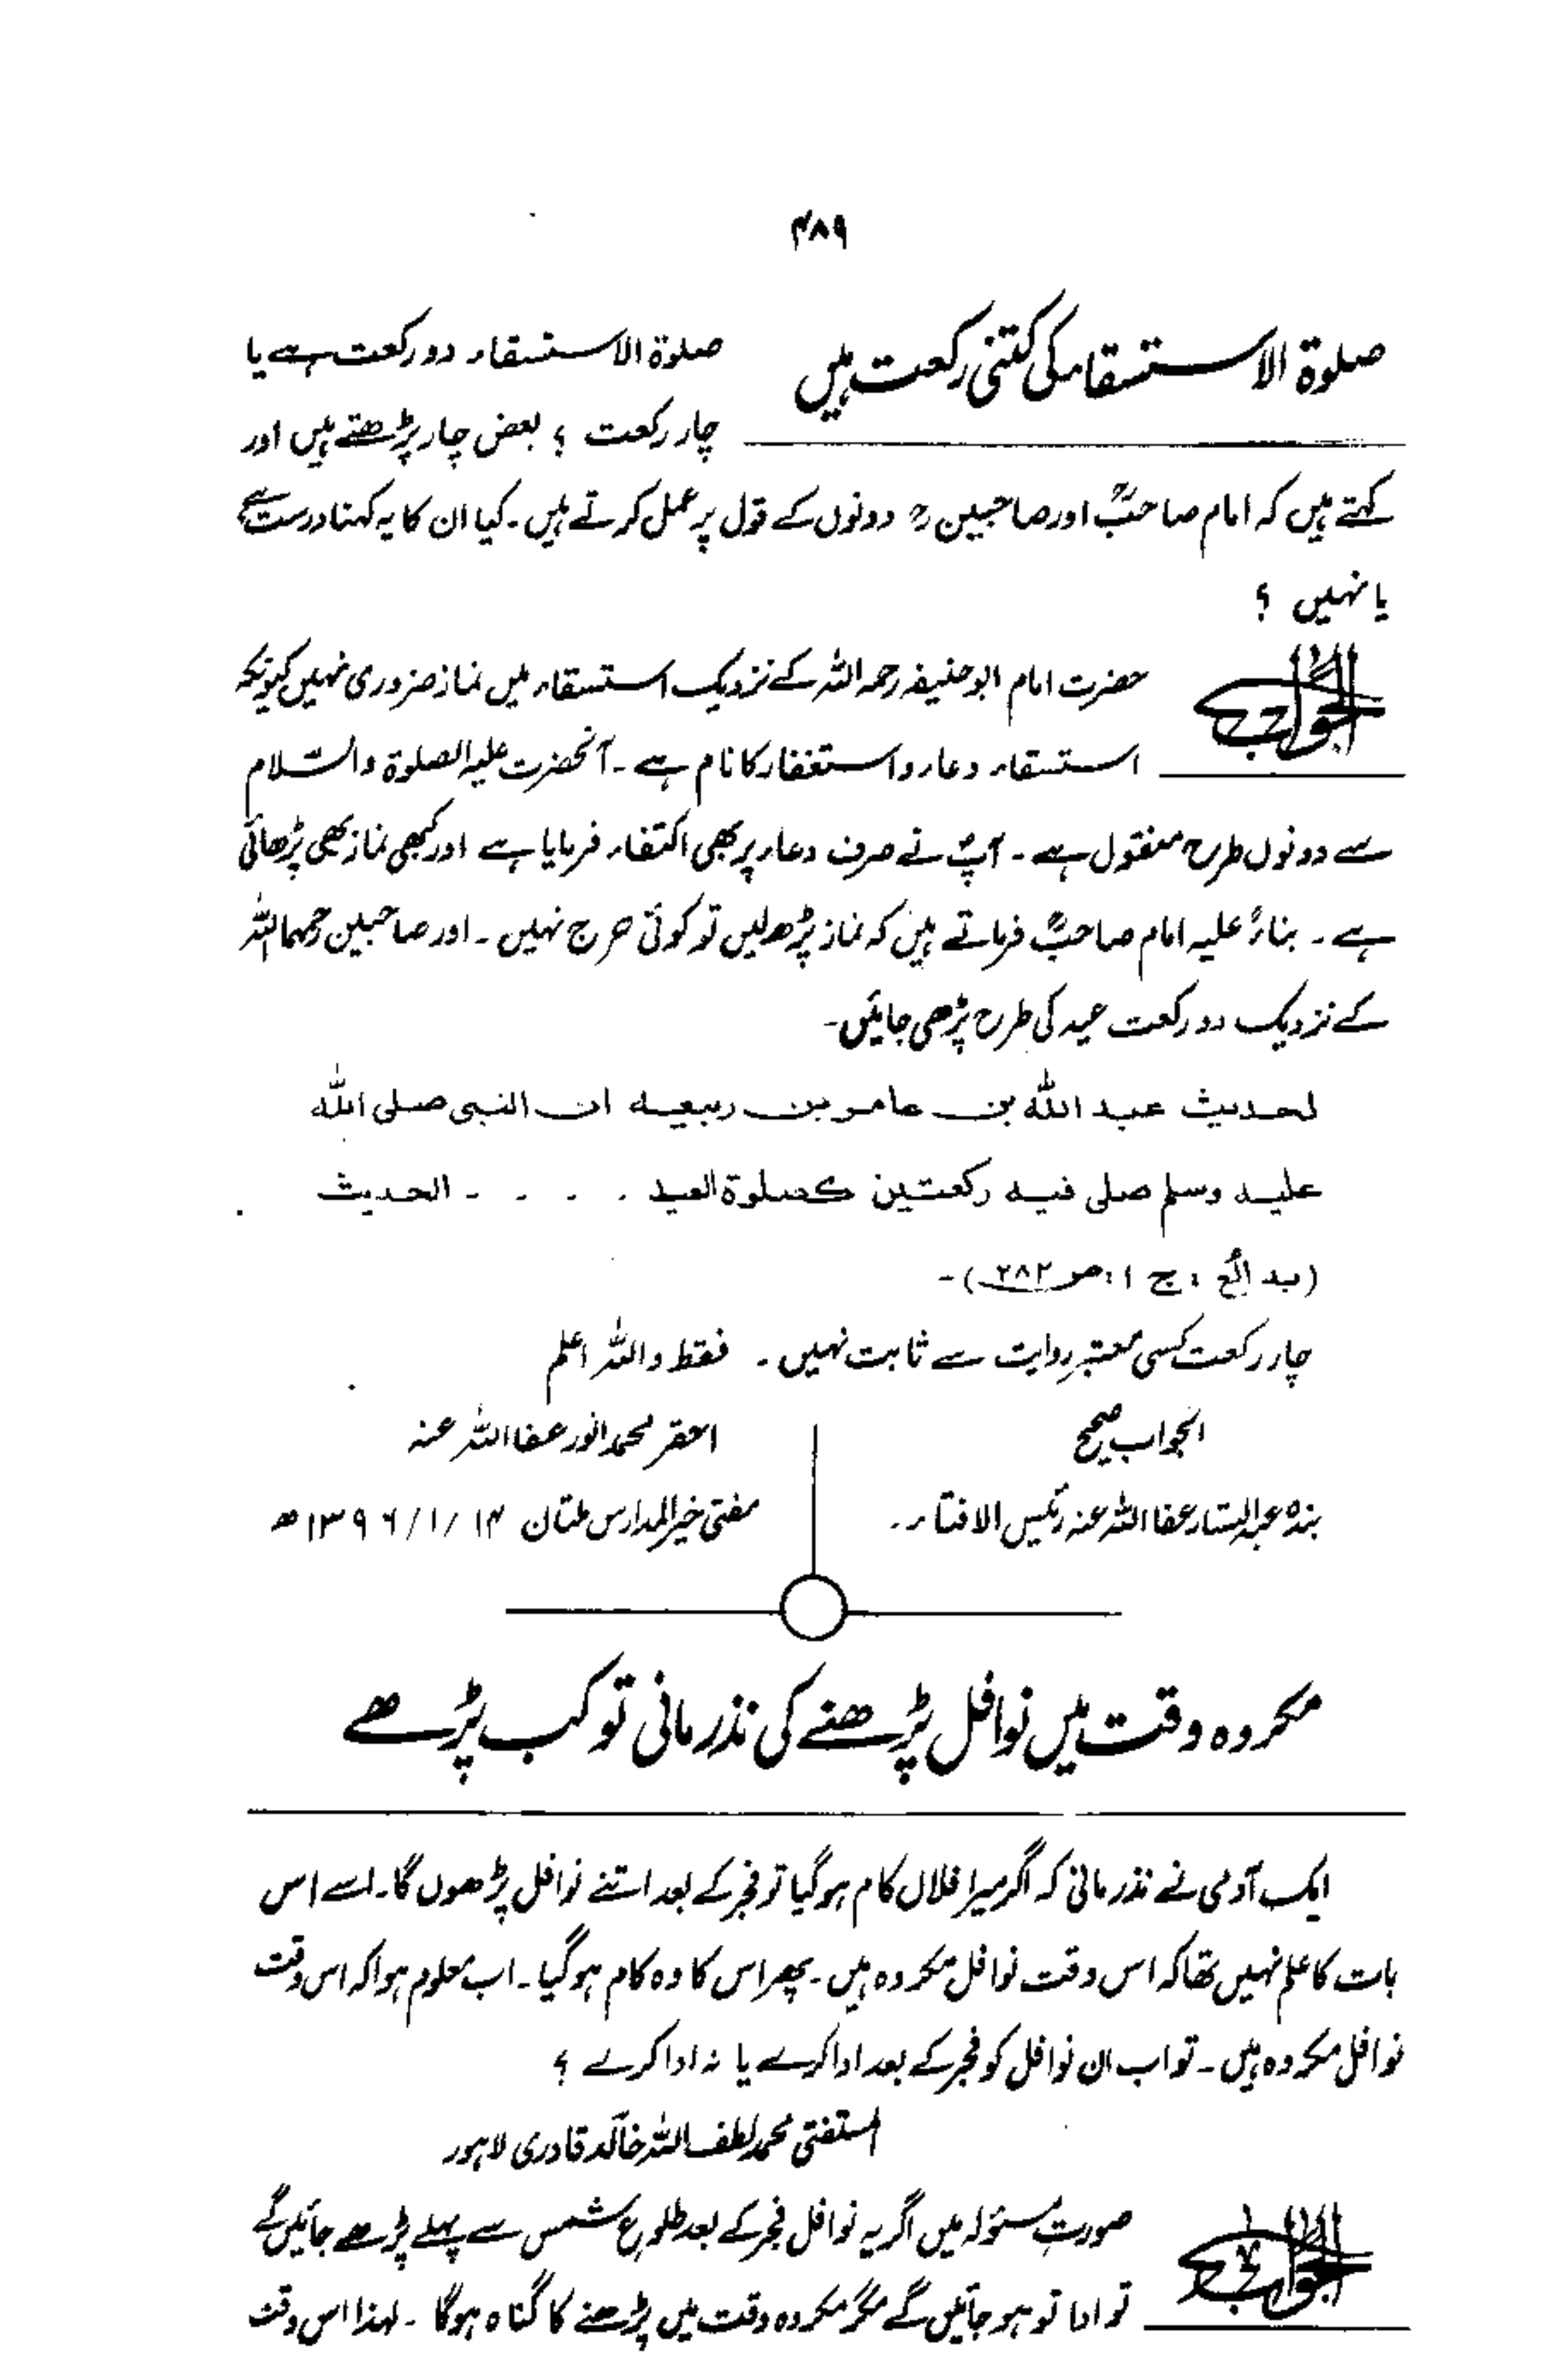 ۴۸۹
صلوٰۃ الاستسقاء کی کتنی رکعت ہیں
صلوٰۃ الاستسقاء دو رکعت ہے یا
چار رکعت ؟ بعض چار پڑھتے ہیں اور
کہتے ہیں کہ امام صاحبؒ اور صاحبینؒ دونوں کے قول پر عمل کرتے ہیں۔ کیا ان کا یہ کہنا درست ہے
یا نہیں ؟
الجواب
حضرت امام ابوحنیفہ رحمہ اللہ کے نزدیک استسقاء میں نماز ضروری نہیں کیونکہ
استسقاء دعاء و استغفار کا نام ہے ۔ آنحضرت علیہ الصلوٰۃ والسلام
سے دونوں طرح منقول ہے ۔ آپؐ نے صرف دعاء پر بھی اکتفاء فرمایا ہے اور کبھی نماز بھی پڑھائی
ہے ۔ بناءً علیہ امام صاحبؒ فرماتے ہیں کہ نماز پڑھ لیں تو کوئی حرج نہیں ۔ اور صاحبین رحمہما اللہ
کے نزدیک دو رکعت عید کی طرح پڑھی جائیں۔
لحدیث عبد اللہ بن عامر بن ربیعہ ان النبی صلی اللہ
علیہ وسلم صلی فیہ رکعتین کصلوۃ العید ۔ ۔ ۔ ۔ الحدیث
(بدائع : ج ۱ : ص ۲۸۲)۔
چار رکعت کسی معتبر روایت سے ثابت نہیں ۔ فقط واللہ اعلم
الجواب صحیح
بندہ عبدالستار عفا اللہ عنہ رئیس الافتاء ۔
احقر محمد انور عفا اللہ عنہ
مفتی خیر المدارس ملتان ۱۴ /۱/ ۱۳۹۶ ھ
مکروہ وقت میں نوافل پڑھنے کی نذر مانی تو کب پڑھے
ایک آدمی نے نذر مانی کہ اگر میرا فلاں کام ہوگیا تو فجر کے بعد اتنے نوافل پڑھوں گا۔ اسے اس
بات کا علم نہیں تھا کہ اس وقت نوافل مکروہ ہیں۔ پھر اس کا وہ کام ہوگیا۔ اب معلوم ہوا کہ اس وقت
نوافل مکروہ ہیں۔ تو اب ان نوافل کو فجر کے بعد ادا کرے یا نہ ادا کرے ؟
المستفتی محمد لطف اللہ خالد قادری لاہور
الجواب
صورتِ مسئولہ میں اگر یہ نوافل فجر کے بعد طلوعِ شمس سے پہلے پڑھے جائیں گے
تو ادا تو ہو جائیں گے مگر مکروہ وقت میں پڑھنے کا گناہ ہوگا ۔ لہذا اس وقت